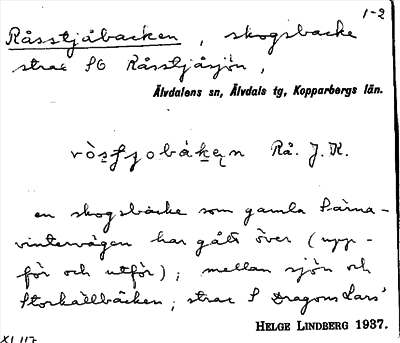 1-2
Råsstjåbacken, skogsbacke
strax SO Råsstjåsjön,
Älvdalens sn, Älvdals tg, Kopparbergs län.
Rå. J. K.
en skogsbacke som gamla Särna-
vintervägen har gått över (upp-
för och utför); mellan sjön och
Storkällbäcken; strax S Dragons Lars'
HELGE LINDBERG 1937.
XI 117